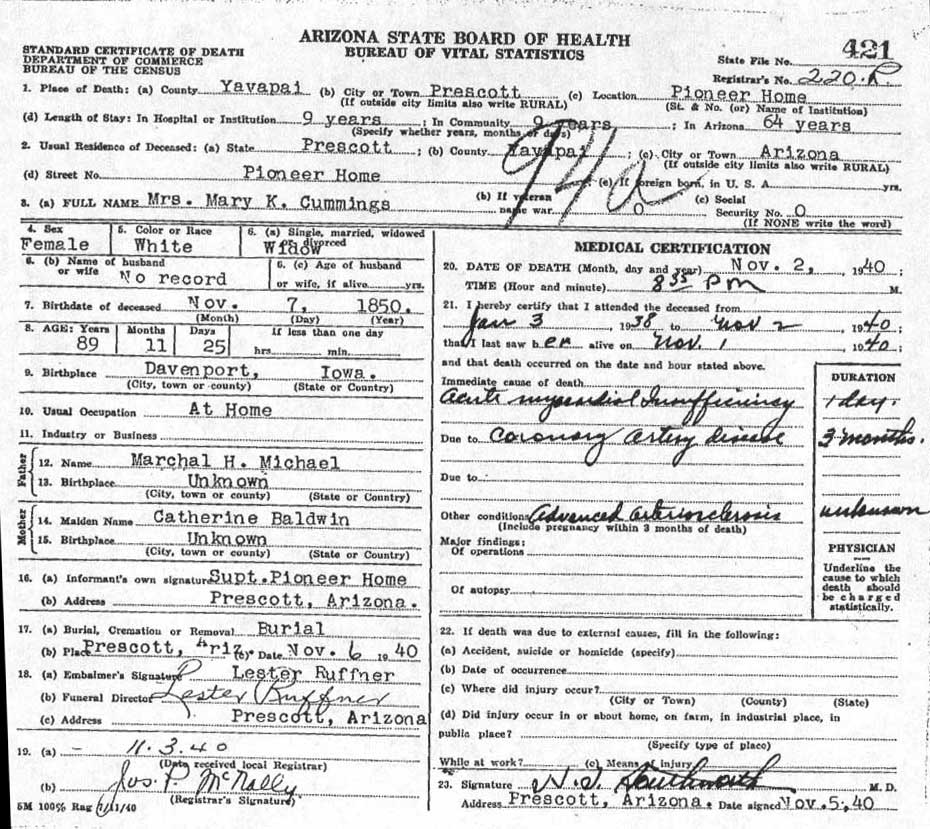 ARIZONA STATE BOARD OF HEALTH
BUREAU OF VITAL STATISTICS
STANDARD CERTIFICATE OF DEATH
DEPARTMENT OF COMMERCE
BUREAU OF THE CENSUS
State File No. 421
Registrar's No. 220-R
1. Place of Death: (a) County Yavapai (b) City or Town Prescott (c) Location Pioneer Home
(If outside city limits also write RURAL) (St. & No. (or) Name of Institution)
(d) Length of Stay: In Hospital or Institution 9 years ; In Community 9 years ; In Arizona 64 years
(Specify whether years, months or days)
2. Usual Residence of Deceased: (a) State Prescott ; (b) County Yavapai ; (c) City or Town Arizona
(If outside city limits also write RURAL)
(d) Street No. Pioneer Home (e) If foreign born, in U. S. A. yrs.
94a
3. (a) FULL NAME Mrs. Mary K. Cummings (b) If veteran name war. 0 (c) Social Security No. 0
(If NONE write the word)
4. Sex Female
5. Color or Race White
6. (a) Single, married, widowed or divorced Widow
6. (b) Name of husband or wife No record
6. (c) Age of husband or wife, if alive yrs.
7. Birthdate of deceased Nov. 7, 1850.
(Month) (Day) (Year)
8. AGE: Years Months Days If less than one day
89 11 25 hrs. min.
9. Birthplace Davenport, Iowa.
(City, town or county) (State or Country)
10. Usual Occupation At Home
11. Industry or Business
Father
12. Name Marchal H. Michael
13. Birthplace Unknown
(City, town or county) (State or Country)
Mother
14. Maiden Name Catherine Baldwin
15. Birthplace Unknown
(City, town or county) (State or Country)
16. (a) Informant's own signature Supt. Pioneer Home
(b) Address Prescott, Arizona.
17. (a) Burial, Cremation or Removal Burial
(b) Place Prescott, Ariz (c) Date Nov. 6 1940
18. (a) Embalmer's Signature Lester Ruffner
(b) Funeral Director Lester Ruffner
(c) Address Prescott, Arizona
19. (a) - 11.3.40
(Date received local Registrar)
(b) Jos. P. McNally
(Registrar's Signature)
5M 100% Rag 1/11/40
MEDICAL CERTIFICATION
20. DATE OF DEATH (Month, day and year) Nov. 2, 1940 ;
TIME (Hour and minute) 8 35 Pm M.
21. I hereby certify that I attended the deceased from
Jan 3 1938 to Nov 2 1940 ;
that I last saw her alive on Nov. 1 1940 ;
and that death occurred on the date and hour stated above.
DURATION
Immediate cause of death
Acute myocardial Insufficiency 1 day.
Due to Coronary Artery disease 3 months.
Due to
Other conditions Advanced Arteriosclerosis unknown
(Include pregnancy within 3 months of death)
Major findings:
Of operations
Of autopsy
PHYSICIAN
Underline the
cause to which
death should
be charged
statistically.
22. If death was due to external causes, fill in the following:
(a) Accident, suicide or homicide (specify)
(b) Date of occurrence
(c) Where did injury occur?
(City or Town) (County) (State)
(d) Did injury occur in or about home, on farm, in industrial place, in
public place?
(Specify type of place)
While at work? (e) Means of injury
23. Signature H. T. Southworth M. D.
Address Prescott, Arizona. Date signed Nov. 5, 40